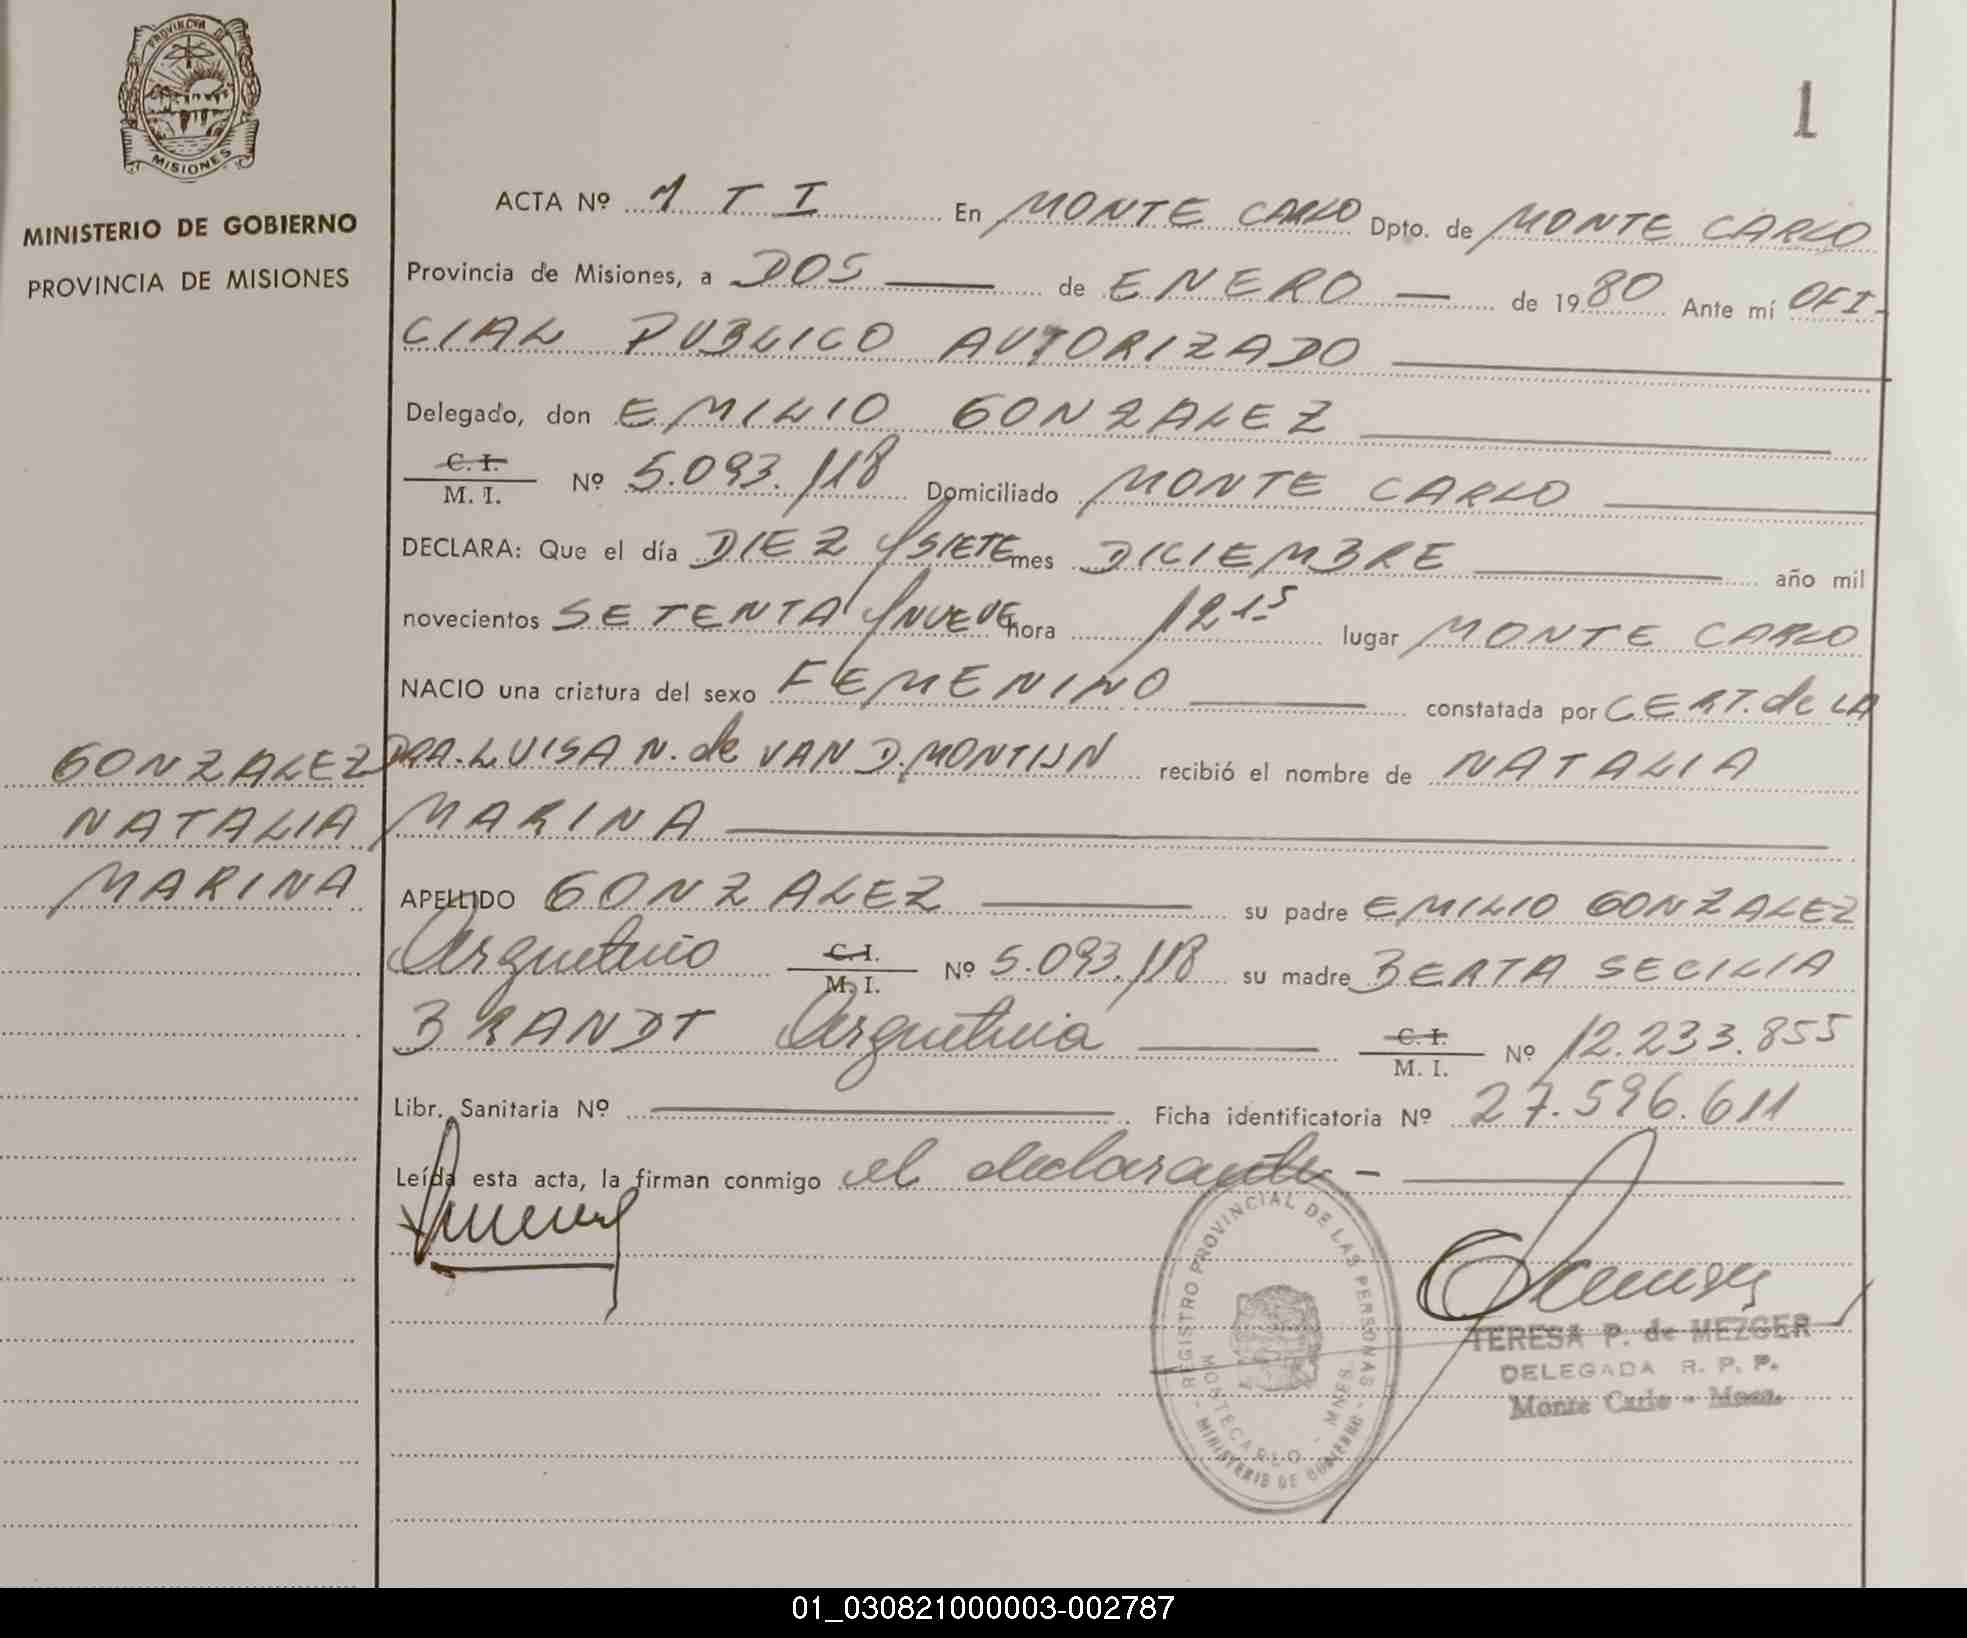 PROVINCIA DE
MISIONES
MINISTERIO DE GOBIERNO
PROVINCIA DE MISIONES
1
ACTA Nº 1 T I En MONTE CARLO Dpto. de MONTE CARLO
Provincia de Misiones, a DOS de ENERO de 1980 Ante mí OFI-
CIAL PUBLICO AUTORIZADO
Delegado, don EMILIO GONZALEZ
C. I.
M. I. Nº 5.093.118 Domiciliado MONTE CARLO
DECLARA: Que el día DIEZ Y SIETE mes DICIEMBRE año mil
novecientos SETENTA Y NUEVE hora 12 15 lugar MONTE CARLO
NACIO una criatura del sexo FEMENINO constatada por CERT. de LA
DRA. LUISA N. de VAN D. MONTIJN recibió el nombre de NATALIA
MARINA
GONZALEZ
NATALIA
MARINA
APELLIDO GONZALEZ su padre EMILIO GONZALEZ
Argentino C. I.
M. I. Nº 5.093.118 su madre BERTA SECILIA
BRANDT Argentina C. I.
M. I. Nº 12.233.855
Libr. Sanitaria Nº Ficha identificatoria Nº 27.596.611
Leída esta acta, la firman conmigo el declarante -
REGISTRO PROVINCIAL DE LAS PERSONAS
MONTECARLO - MNES.
- MINISTERIO DE GOBIERNO -
TERESA P. de MEZGER
DELEGADA R. P. P.
Monte Carlo - Mnes.
01_030821000003-002787